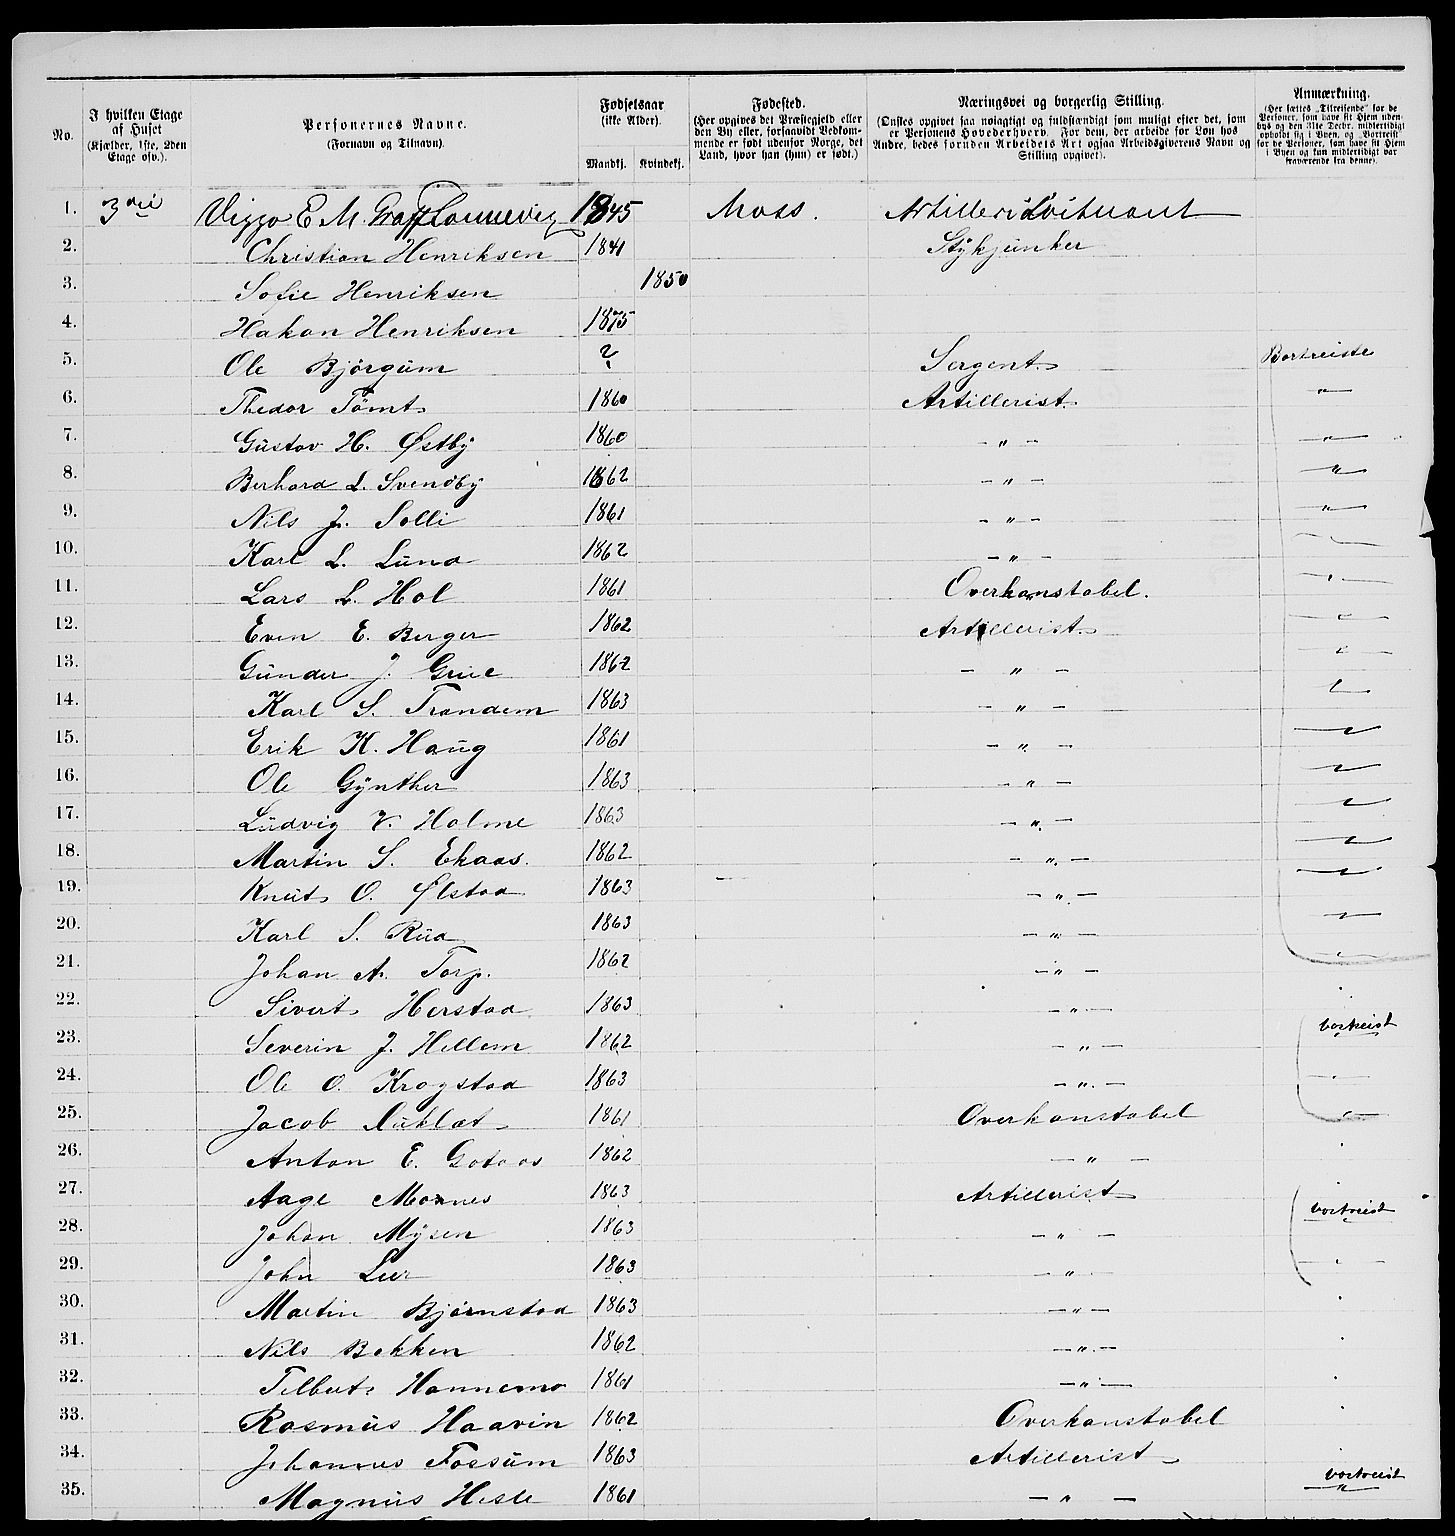 No.
I hvilken Etage
af Huset
(Kjælder, 1ste, 2den
Etage osv.).
Personernes Navne.
(Fornavn og Tilnavn).
Fødselsaar
(ikke Alder).
Mandkj. Kvindekj.
Fødested.
(Her opgives det Præstegjeld eller
den By eller, forsaavidt Vedkom-
mende er født udenfor Norge, det
Land, hvor han (hun) er født.)
Næringsvei og borgerlig Stilling.
(Ønskes opgivet saa nøiagtigt og fuldstændigt som muligt efter det, som
er Personens Hovederhverv. For dem, der arbeide for Løn hos
Andre, bedes foruden Arbeidets Art ogsaa Arbeidsgiverens Navn og
Stilling opgivet).
Anmærkning.
(Her sættes „Tilreisende" for de
Personer, som have sit Hjem uden-
bys og den 31te Decbr. midlertidigt
opholdt sig i Byen, og „Bortreist"
for de Personer, som have sit Hjem
i Byen og kun midlertidigt var
fraværende fra denne).
1. 3die Viggo E. M. Graff 1845 Moss. Artilleri
2. Christian Henriksen 1841 Stykjunker
3. Sofie Henriksen 1850
4. Hakon Henriksen 1875
5. Ole Bjørgum ? Sergent. Bortreiste
6. Thedor Tømt 1860 Artillerist. "
7. Gustav H. Østby 1860 – " – "
8. Berhard L. Svendby 1862 – " – "
9. Nils J. Solli 1861 – " – "
10. Karl L. Lund 1862 – " –
11. Lars L. Hol 1861 Overkonstabel. "
12. Even E. Berger 1862 Artillerist. "
13. Gunder J. Grue 1862 – " – "
14. Karl S. Trondem 1863 – " – "
15. Erik K. Haug 1861 – " – "
16. Ole Gynther 1863 – " – "
17. Ludvig V. Holme 1863 – " – "
18. Martin S. Ekaas. 1862 – " – "
19. Knut O. Ølstad 1863 – " – "
20. Karl S. Rud 1863 – " – "
21. Johan A. Torp. 1862 – " – "
22. Sivert Herstad 1863 – " –
23. Severin J. Hellem 1862 – " – bortreist
24. Ole O. Krogstad 1863 – " – "
25. Jacob 1861 Overkonstabel "
26. Anton E. Gotaas 1862 – " –
27. Aage Moxnes 1863 Artillerist
28. Johan Mysen 1863 – " – bortreist
29. John Lier 1863 – " – "
30. Martin Bjørnstad 1863 – " –
31. Nils Bekken 1862 – " –
32. Hannemo 1861 – " –
33. Rasmus Haavin 1862 Overkonstabel
34. Johannes Fossum 1863 Artillerist
35. Magnus Hesle 1861 – " – bortreist